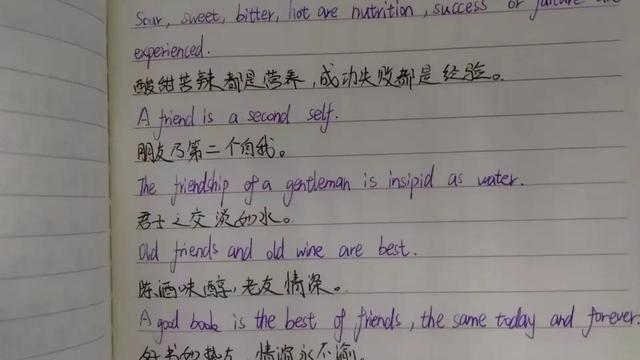 Sour, sweet, bitter, hot are nutrition, success or failure are
experienced.
酸甜苦辣都是营养，成功失败都是经验。
A friend is a second self.
朋友乃第二个自我。
The friendship of a gentleman is insipid as water.
君子之交淡如水。
Old friends and old wine are best.
陈酒味醇，老友情深。
A good book is the best of friends, the same today and forever.
好书如挚友，情谊永不渝。